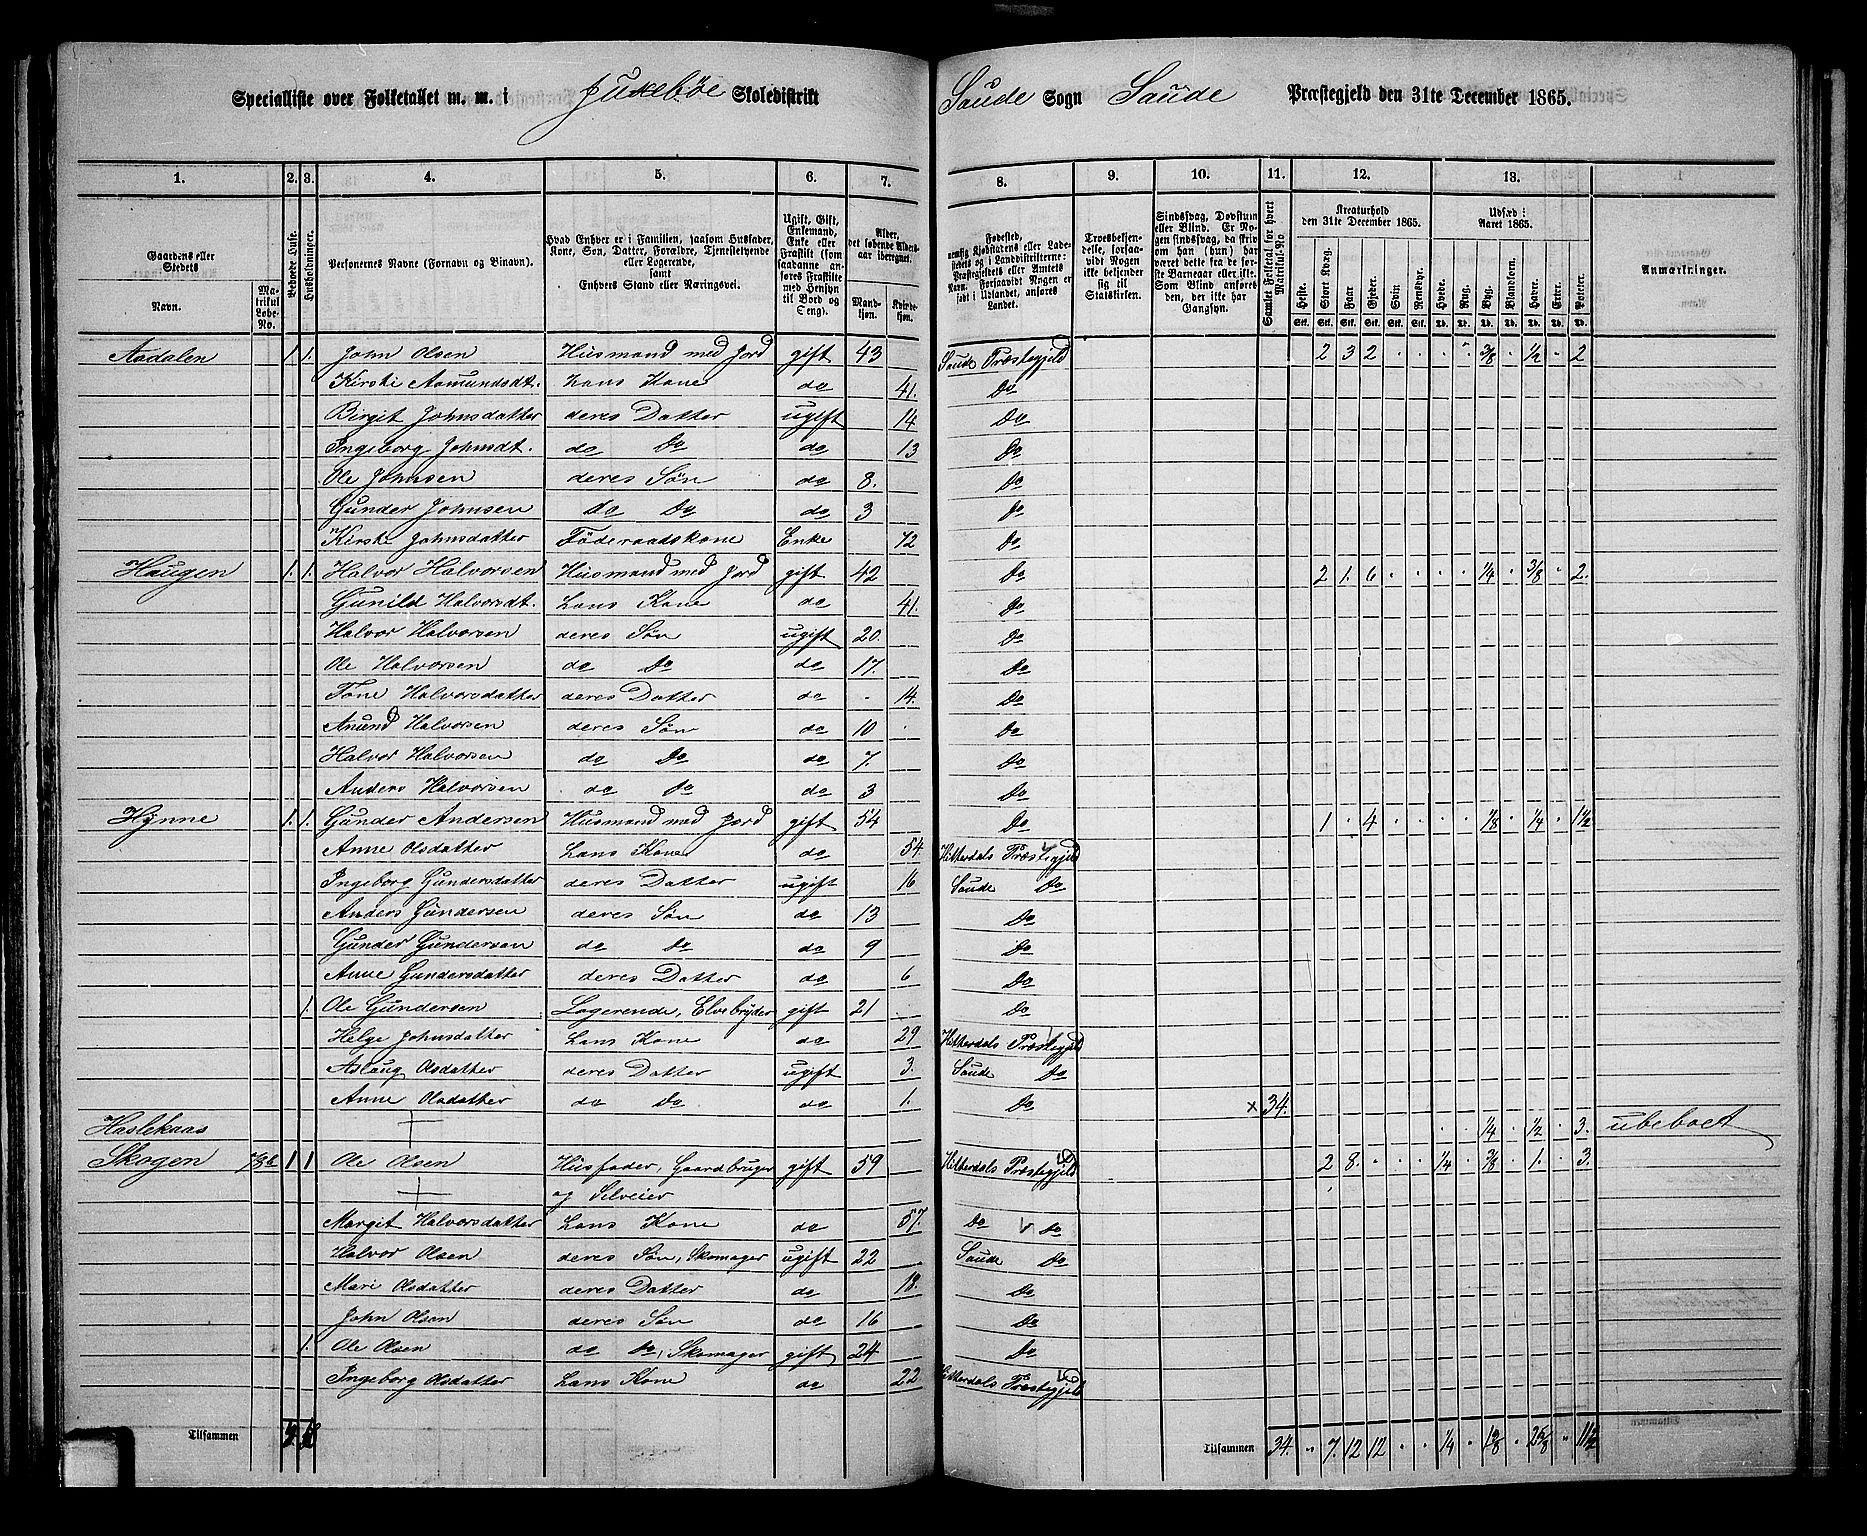 Specialliste over Folketallet m. m. i Jukebøe Skoledistrikt Saude Sogn Saude Præstegjeld den 31te December 1865.
1. 2. 3. 4. 5. 6. 7. 8. 9. 10. 11. 12. 13.
Gaardens eller Stedets
Navn. Matrikul Løbe-No.
Beboede Huse.
Husholdninger.
Personernes Navne (Fornavn og Binavn).
Hvad Enhver er i Familien, saasom Husfader, Kone, Søn, Datter, Forældre, Tjenestetyende eller Logerende, samt Enhvers Stand eller Næringsvei.
Ugift, Gift, Enkemand, Enke eller Fraskilt (som saadanne anføres Fraskilte med Hensyn til Bord og Seng).
Alder, det løbende Aldersaar iberegnet.
Mandkjøn. Kvindekjøn.
Troesbekjendelse, forsaavidt Nogen ikke bekjender sig til Statskirken.
Sindssvag, Døvstum eller Blind. Er Nogen sindssvag, da skriv om han (hun) har været dette fra de første Barneaar eller ikke. Som Blind anføres den, der ikke har Gangsyn.
Samlet Folketal for hvert Matrikul-No
Kreaturhold den 31te December 1865.
Heste. Stort Kvæg. Faar. Gjeder. Svin. Rensdyr.
Udsæd i Aaret 1865.
Hvede. Rug. Byg. Blandkorn. Havre. Erter. Poteter.
Anmærkninger.
Aadalen 1. 1. John Olsen Husmand med Jord gift 43 Saude Præstegjeld 2 3 2 3/8 1/2 2
Kirsti Aamundsdt. hans Kone do 41. Do
Birgit Johnsdatter deres Datter ugift 14 Do
Ingeborg Johnsdt. do Do do 13 Do
Ole Johnsen deres Søn do 8. Do
Gunder Johnsen do Do do 3 Do
Kirsti Johnsdatter Föderaadskone Enke 72 Do
Haugen 1. 1. Halvor Halvorsen Husmand med Jord gift 42 Do 2 1. 6 1/4 3/8 2.
Gunild Halvorsdt. hans Kone do 41. Do
Halvor Halvorsen deres Søn ugift 20. Do
Ole Halvorsen do Do do 17. Do
Tone Halvorsdatter deres Datter do 14. Do
Amund Halvorsen deres Søn do 10 Do
Halvor Halvorsen do Do do 7. Do
Anders Halvorsen do Do do 3 Do
Hynne 1. 1. Gunder Andersen Husmand med Jord gift 54 Do 1 4 1/8 1/4 1 1/2
Anne Olsdatter hans Kone do 54 Hitterdals Præstegjeld
Ingeborg Gundersdatter deres Datter ugift 16 Saude Do
Anders Gundersen deres Søn do 13 Do
Gunder Gundersen do Do do 9 Do
Anne Gundersdatter deres Datter do 6 Do
1. Ole Gundersen Logerende, Elvebryder gift 21 Do
Helge Johnsdatter hans Kone do 29 Hitterdals Præstegjeld
Aslaug Olsdatter deres Datter ugift 3. Saude Do
Anne Olsdatter do Do do 1. Do x 34.
Haslekaas 1/4 1/2 3. ubeboet
Skogen 1 1 Ole Olsen Husfader, Gaardbruger gift 59 Hitterdals Præstegjeld 2 8. 1/4 3/8 1. 3.
og Selveier
Margit Halvorsdatter hans Kone do 57. Do Do
Halvor Olsen deres Søn, Skomager ugift 22 Saude Do
Mari Olsdatter deres Datter do 18. Do
John Olsen deres Søn do 16 Do
1. Ole Olsen do Do, Skomager gift 24 Do
Ingeborg Olsdatter hans Kone do 22 Hitterdals Præstegjeld
Tilsammen
Tilsammen 34. 7. 12 12 1/4 1 1/8 2 5/8 11 1/2